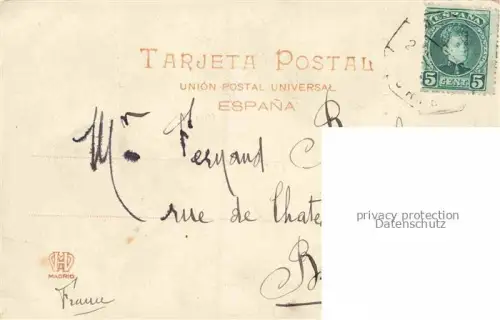 TARJETA POSTAL
UNIÓN POSTAL UNIVERSAL
ESPAÑA
ESPAÑA
5 CENT. 5
Mr. Fernand B
rue de Chate
B
privacy protection
Datenschutz
MADRID
France